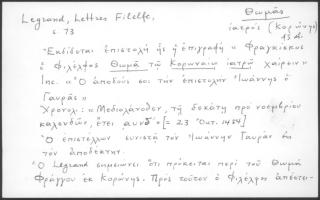 Legrand, Lettres Filelfe,
s 73
Θωμᾶς
ἰατρός (Κορώνης)
15 αἰ.
Ἐκδίδεται ἐπιστολὴ ἧς ἡ ἐπιγραφὴ « Φραγκίσκος
ὁ Φιλέλφος Θωμᾷ τῷ Κορωναίῳ ἰατρῷ χαίρειν »
Inc. « Ὁ ἀποδούς σοι τὴν ἐπιστολὴν Ἰωάννης ὁ
Γαυρᾶς »
Χρονολ: « Μεδιολάνοθεν, τῇ δεκάτῃ πρὸ νοεμβρίου
καλενδῶν, ἔτει αυνδʹ » [= 23 Ὀκτ. 1454]
Ὁ ἐπιστέλλων συνιστᾷ τὸν Ἰωάννην Γαυρᾶν εἰς
τὸν ἀποδέκτην.
Ὁ Legrand σημειώνει ὅτι πρόκειται περὶ τοῦ Θωμᾶ
Φράγγου ἐκ Κορώνης. Πρὸς τοῦτον ὁ Φιλέλφης ἀπέστει-